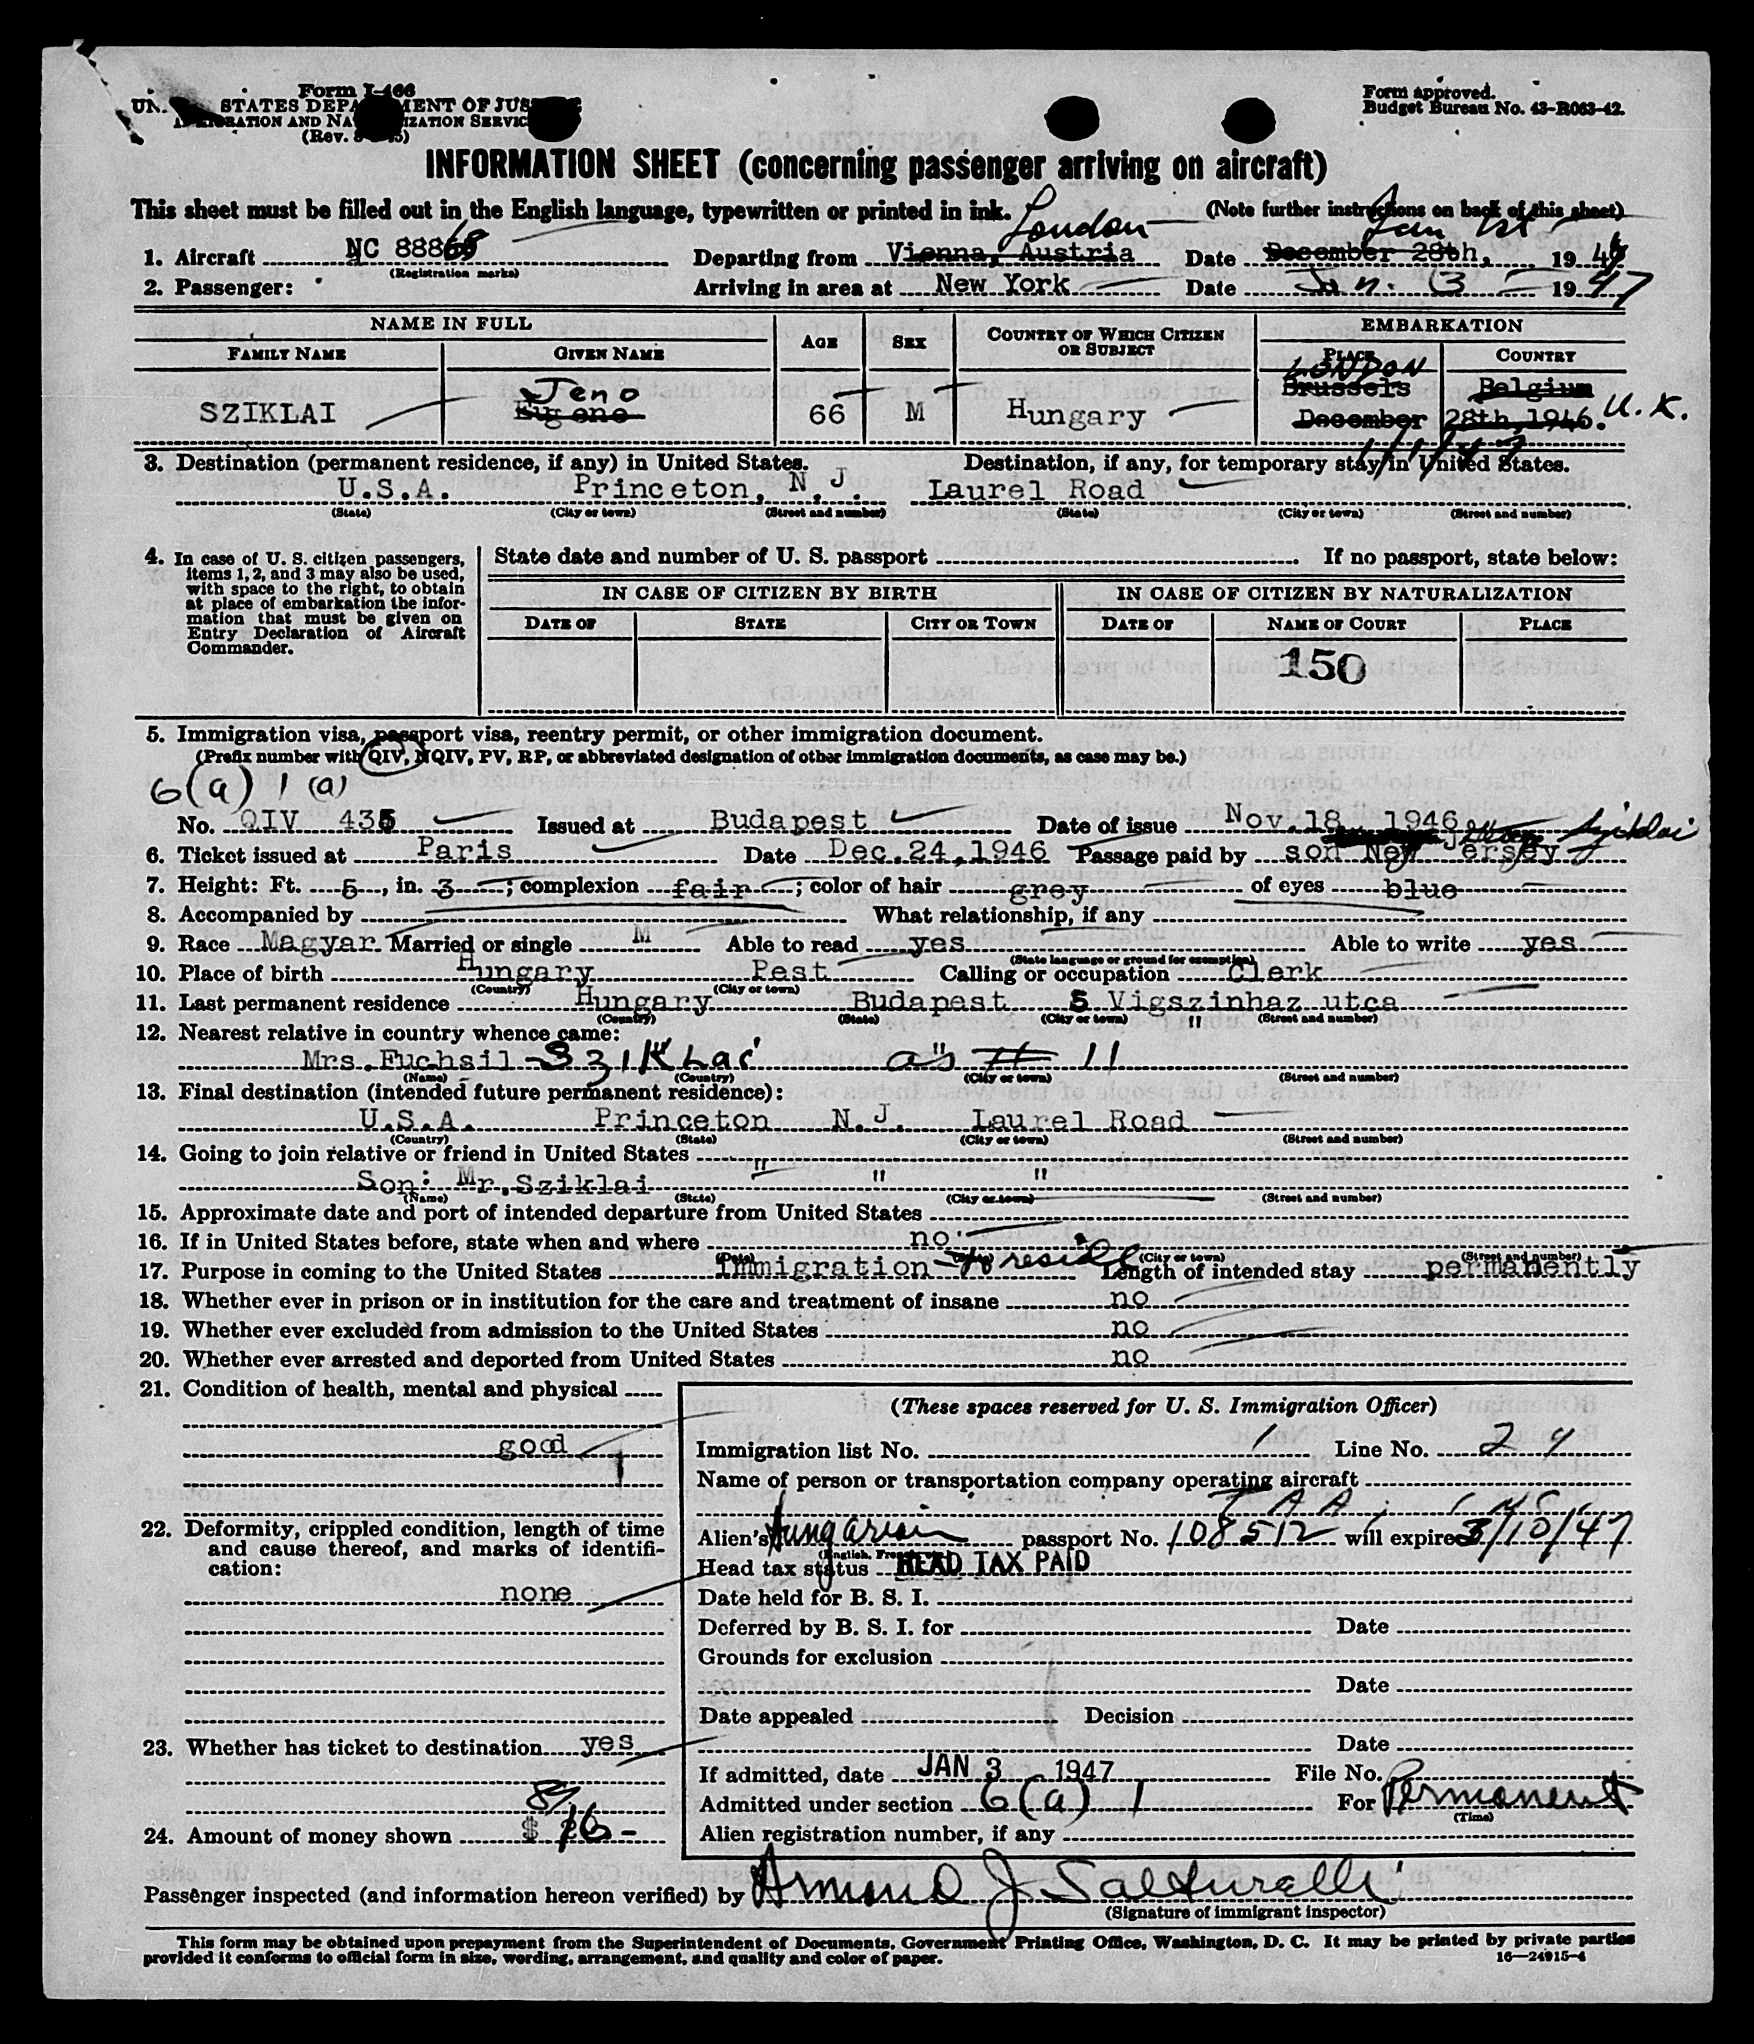 Form I-466
UN STATES DEPA MENT OF JUS
RATION AND NA IZATION SERVIC
(Rev.
Form approved.
Budget Bureau No. 43-R063-42.
INFORMATION SHEET (concerning passenger arriving on aircraft)
This sheet must be filled out in the English language, typewritten or printed in ink. (Note further instructions on back of this sheet)
London Jan 1st
1. Aircraft NC 88868 Departing from Vienna, Austria Date December 28th, 1946
(Registration marks)
2. Passenger: Arriving in area at New York Date Jan. 3 1947
NAME IN FULL AGE SEX COUNTRY OF WHICH CITIZEN OR SUBJECT EMBARKATION
FAMILY NAME GIVEN NAME PLACE COUNTRY
Jeno LONDON
SZIKLAI Eugene 66 M Hungary Brussels Belgium
December 28th, 1946. U.K.
1/1/47
3. Destination (permanent residence, if any) in United States. Destination, if any, for temporary stay in United States.
U.S.A. Princeton, N.J. Laurel Road
(State) (City or town) (Street and number) (State) (City or town) (Street and number)
4. In case of U. S. citizen passengers, items 1, 2, and 3 may also be used, with space to the right, to obtain at place of embarkation the information that must be given on Entry Declaration of Aircraft Commander.
State date and number of U. S. passport If no passport, state below:
IN CASE OF CITIZEN BY BIRTH IN CASE OF CITIZEN BY NATURALIZATION
DATE OF STATE CITY OR TOWN DATE OF NAME OF COURT PLACE
150
5. Immigration visa, passport visa, reentry permit, or other immigration document.
(Prefix number with QIV, NQIV, PV, RP, or abbreviated designation of other immigration documents, as case may be.)
6(a) 1 (a)
No. QIV 435 Issued at Budapest Date of issue Nov.18, 1946
6. Ticket issued at Paris Date Dec.24,1946 Passage paid by son New Jersey Sziklai
7. Height: Ft. 5, in. 3; complexion fair; color of hair grey of eyes blue
8. Accompanied by What relationship, if any
9. Race Magyar Married or single M Able to read yes Able to write yes
(State language or ground for exemption)
10. Place of birth Hungary Pest Calling or occupation Clerk
(Country) (City or town)
11. Last permanent residence Hungary Budapest 5 Vigszinhaz utca
(Country) (State) (City or town) (Street and number)
12. Nearest relative in country whence came: "
Mrs.Fuchsil - SziKLai as # 11
(Name) (Country) (City or town) (Street and number)
13. Final destination (intended future permanent residence):
U.S.A. Princeton N.J. Laurel Road
(Country) (State) (City or town) (Street and number)
14. Going to join relative or friend in United States
Son: Mr.Sziklai " " "
(Name) (State) (City or town) (Street and number)
15. Approximate date and port of intended departure from United States
16. If in United States before, state when and where no
(Date) (City or town) (Street and number)
17. Purpose in coming to the United States Immigration to reside Length of intended stay permanently
18. Whether ever in prison or in institution for the care and treatment of insane no
19. Whether ever excluded from admission to the United States no
20. Whether ever arrested and deported from United States no
21. Condition of health, mental and physical
good
22. Deformity, crippled condition, length of time and cause thereof, and marks of identification:
none
23. Whether has ticket to destination yes
24. Amount of money shown $ 16-
(These spaces reserved for U. S. Immigration Officer)
Immigration list No. 1 Line No. 24
Name of person or transportation company operating aircraft
Alien's Hungarian passport No. 108512 will expire 3/10/47
Head tax status HEAD TAX PAID
Date held for B. S. I.
Deferred by B. S. I. for Date
Grounds for exclusion
Date
Date appealed Decision
Date
If admitted, date JAN 3 1947 File No.
Admitted under section 6(a) 1 For Permanent
(Time)
Alien registration number, if any
Passenger inspected (and information hereon verified) by Armand J Salturelli
(Signature of immigrant inspector)
This form may be obtained upon prepayment from the Superintendent of Documents, Government Printing Office, Washington, D. C. It may be printed by private parties
provided it conforms to official form in size, wording, arrangement, and quality and color of paper.
16—24915-4